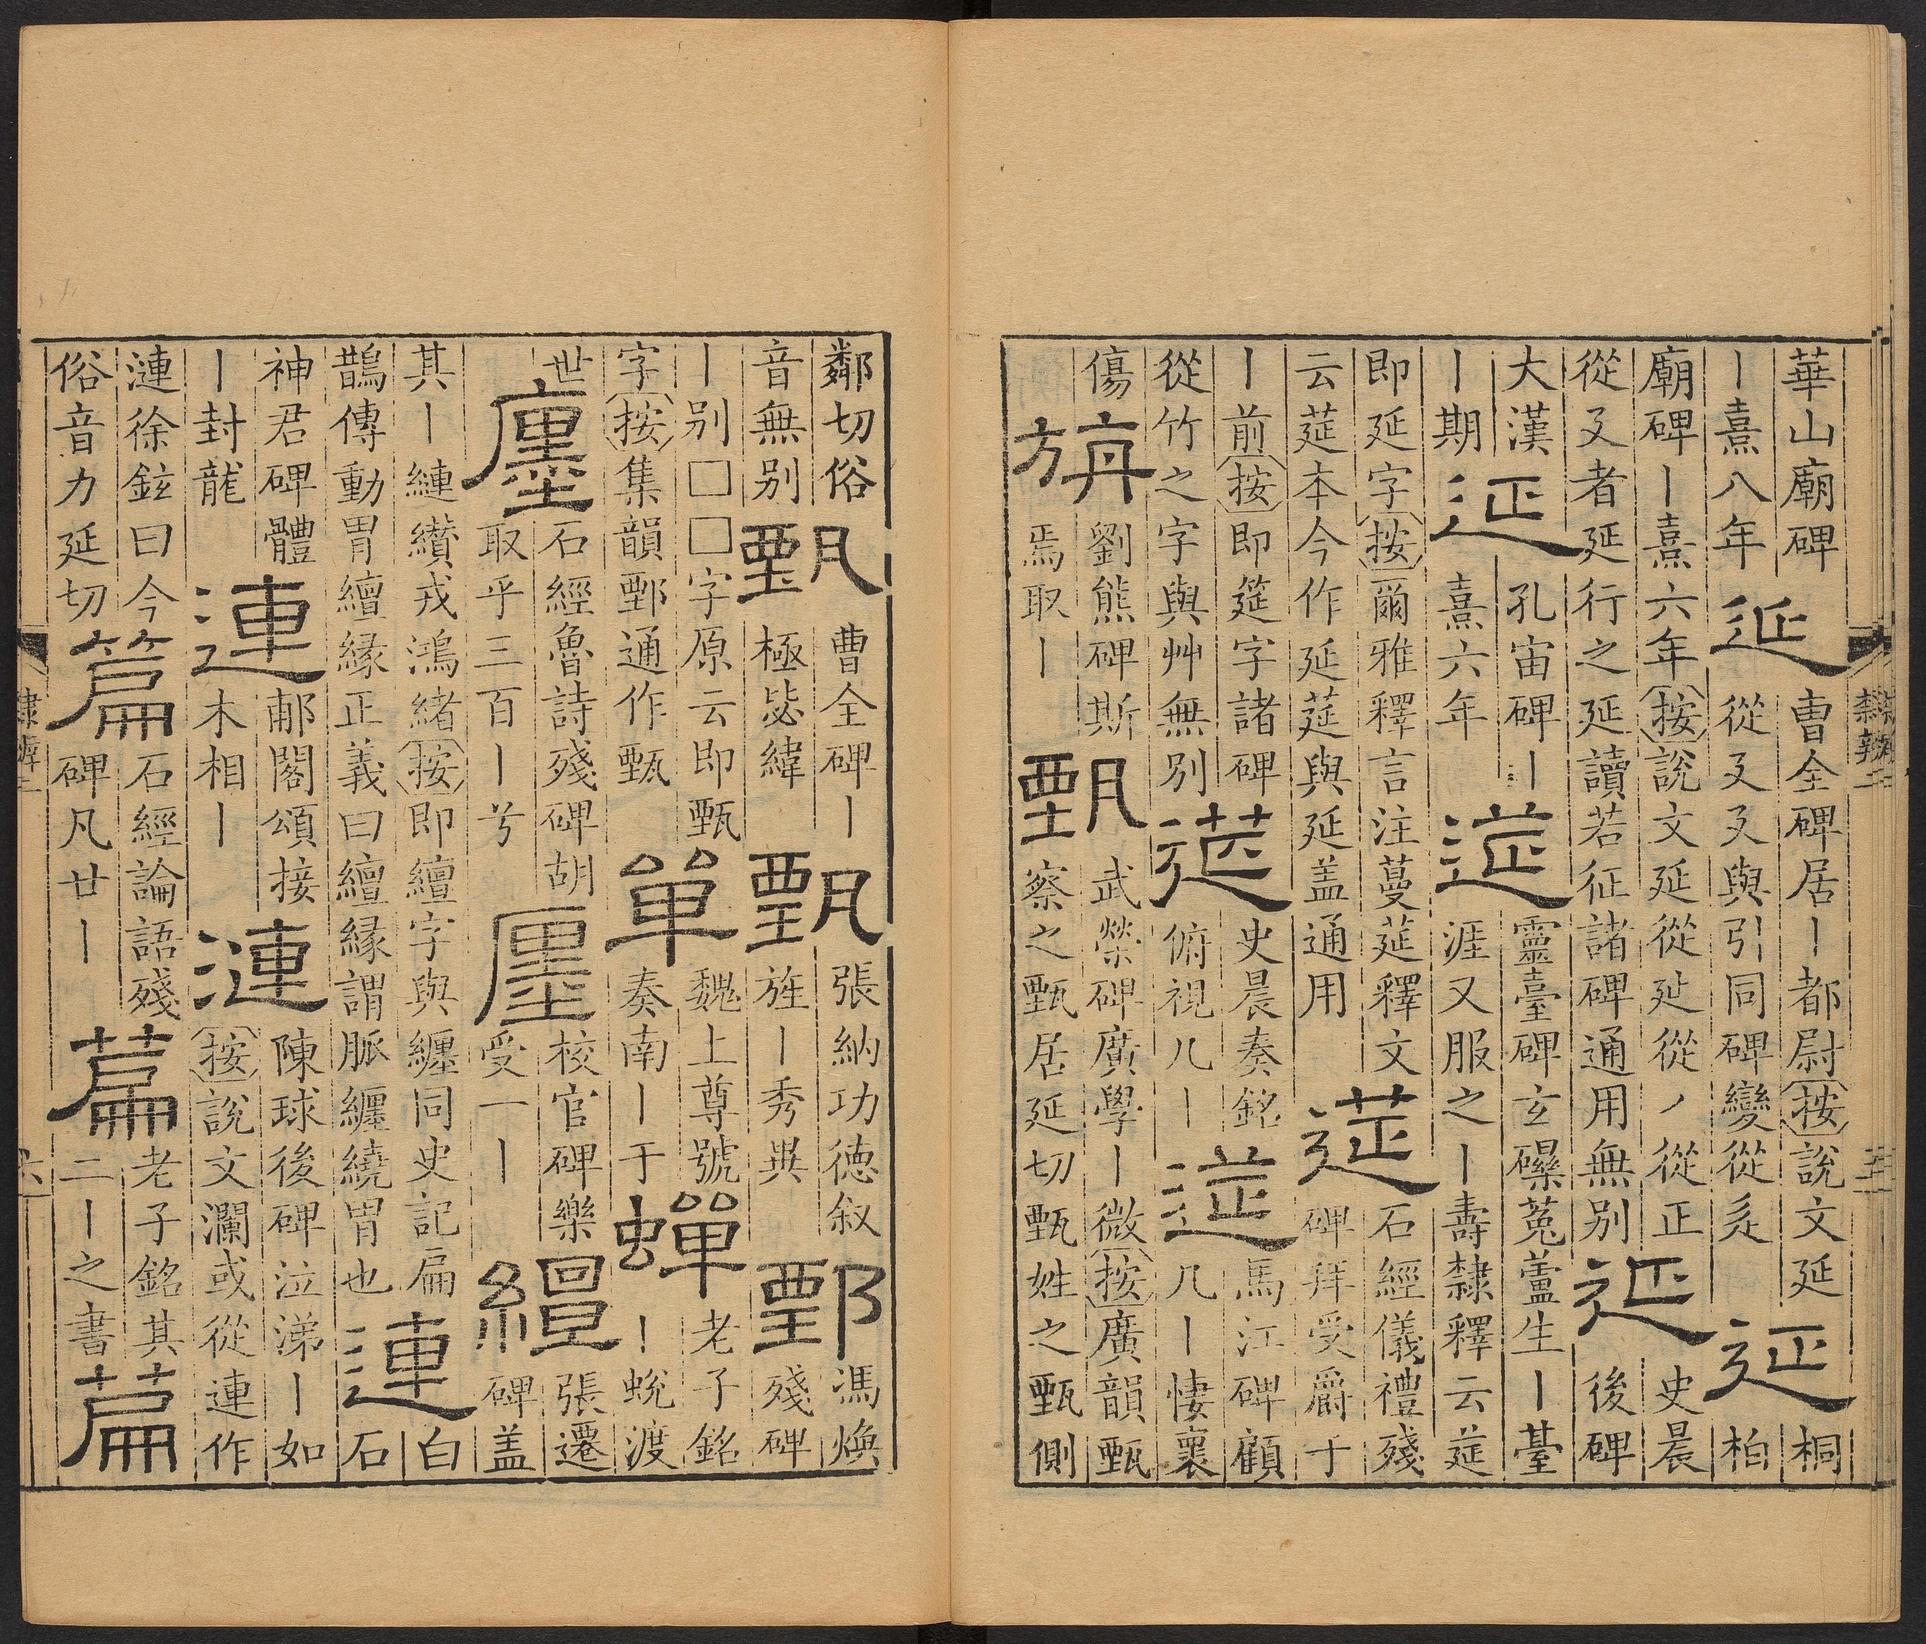 華山廟碑
丨熹八年
延
曹全碑居丨都尉按說文延
從廴廴與引同碑變從辵
延
桐
柏
廟碑丨熹六年按說文延從㢟從丿從正
從廴者延行之延讀若征諸碑通用無別
延
史晨
後碑
大漢
丨期
延
孔宙碑丨
熹六年
莚
靈臺碑玄礫菟蘆生丨䑓
涯又服之丨壽隸釋云莚
即延字按爾雅釋言注蔓莚釋文
云莚本今作延莚與延蓋通用
莚
石經儀禮殘
碑拜受爵于
丨前按即筵字諸碑
從竹之字與艸無別
莚
史晨奏銘
俯視几丨
莚
馬江碑顧
几丨悽襄
傷
旃
劉熊碑斯
焉取丨
甄
武榮碑廣學丨微按廣韻甄
察之甄居延切甄姓之甄側
隸辨二
鄰切俗
音無别
甄
曹全碑丨
極毖緯
甄
張納功德叙
旌丨秀異
鄄
馮煥
殘碑
丨别□□字原云即甄
字按集韻鄄通作甄
單
魏上尊號
奏南丨于
蟬
老子銘
丨蛻渡
世
廛
石經魯詩殘碑胡
取乎三百丨兮
廛
校官碑樂
受一丨
繵
張遷
碑盖
其丨縺纘戎鴻緒按即繵字與纏同史記扁
鵲傳動胃繵緣正義曰繵緣謂脈纏繞胃也
連
白
石
神君碑體
丨封龍
連
郙閣頌接
木相丨
漣
陳球後碑泣涕丨如
按說文瀾或從連作
漣徐鉉曰今
俗音力延切
篇
石經論語殘
碑凡廿丨
篇
老子銘其
二丨之書
篇